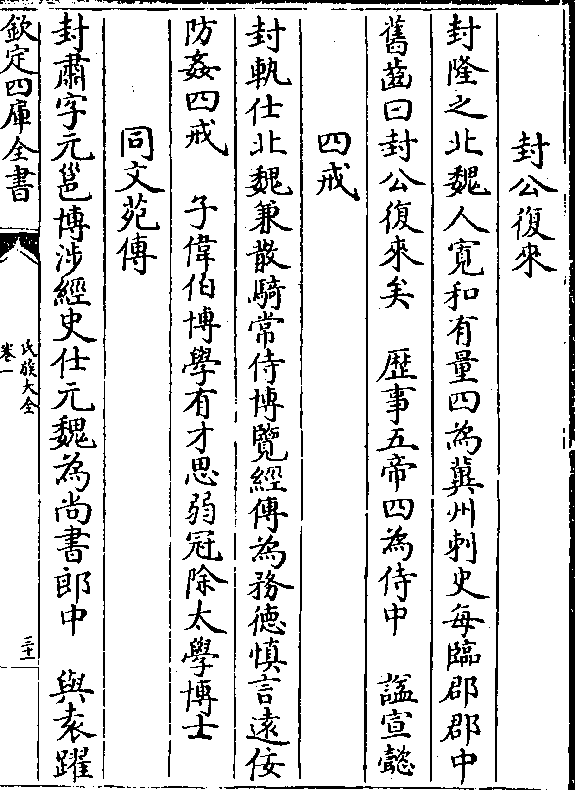 封公復來
封隆之北魏人寛和有量四為冀州刺史每臨郡郡中
舊齒曰封公復來矣　歴事五帝四為侍中　諡宣懿
四戒
封軌仕北魏兼散騎常侍博覽經傳為務徳慎言逺佞
防姦四戒　子偉伯博學有才思弱冠除太學博士
同文苑傳
封肅字元邕博涉經史仕元魏為尚書郎中　與袁躍
欽定四庫全書
氏族大全
卷一
三十一